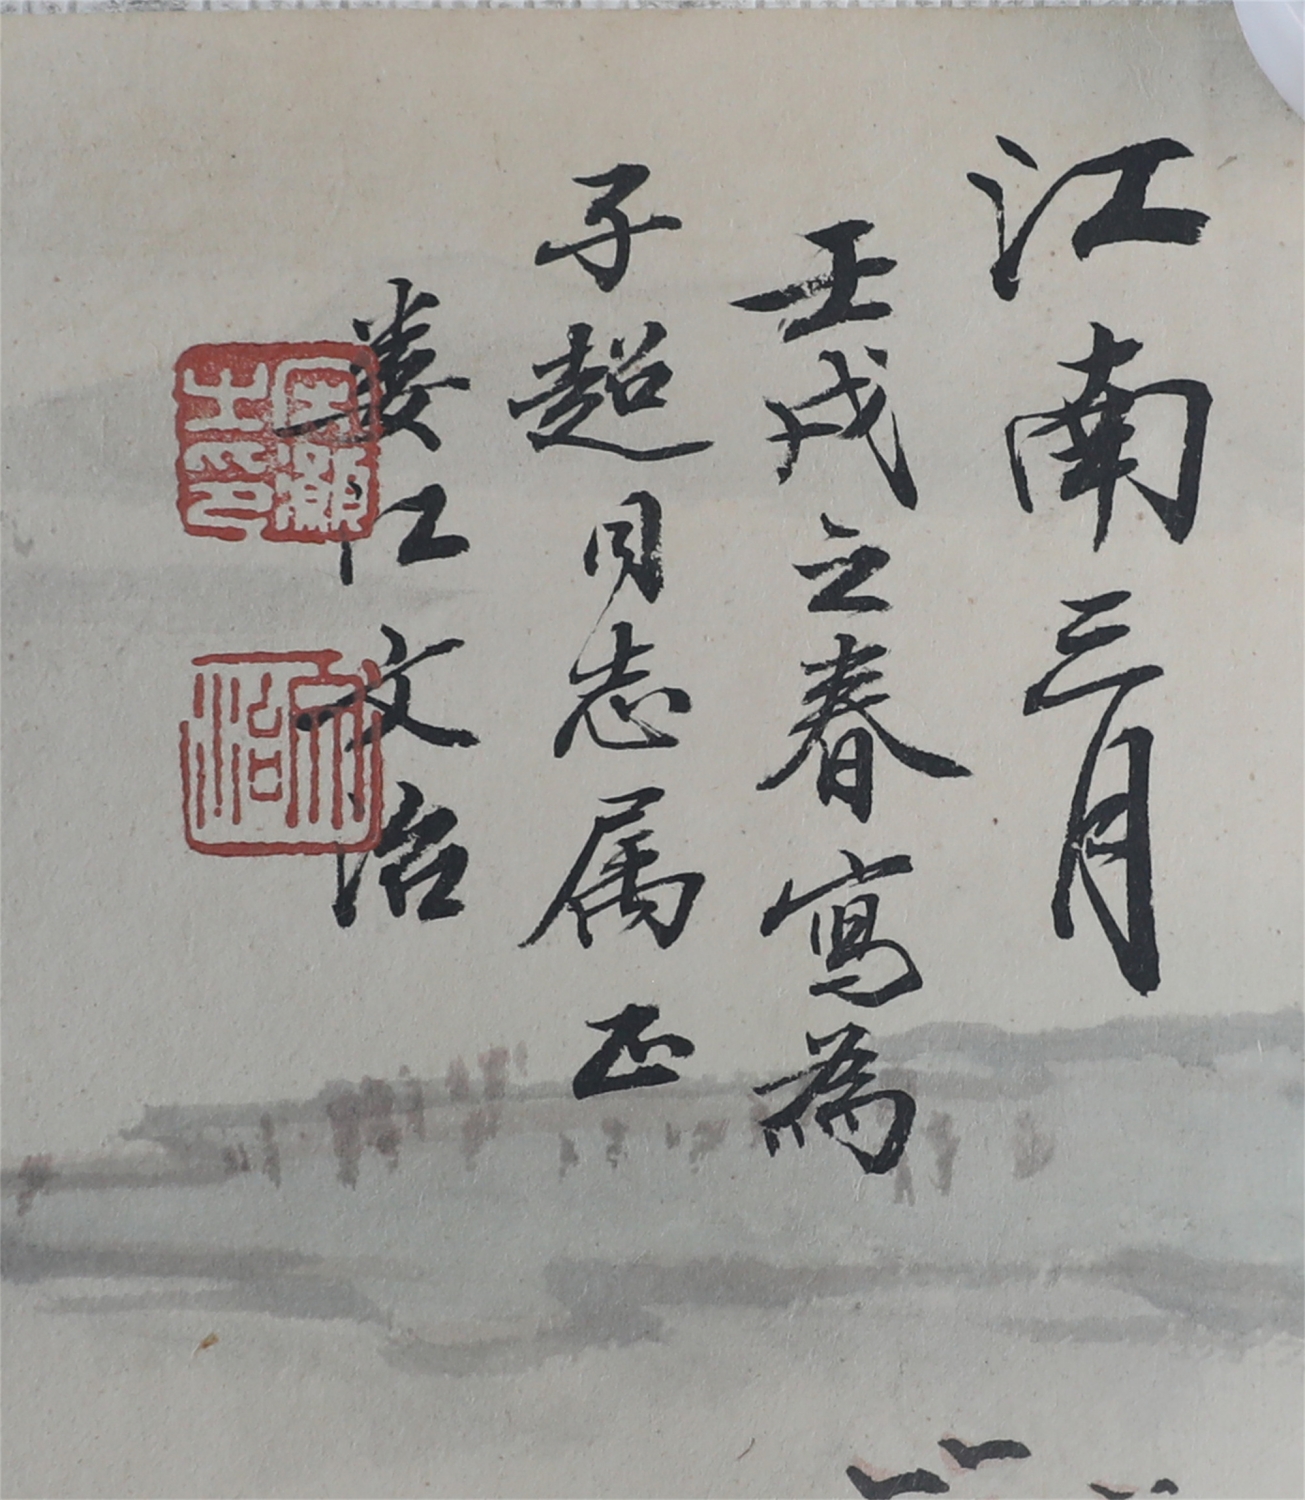 江南三月
壬戌之春寫為
子超同志属正
娄江文治